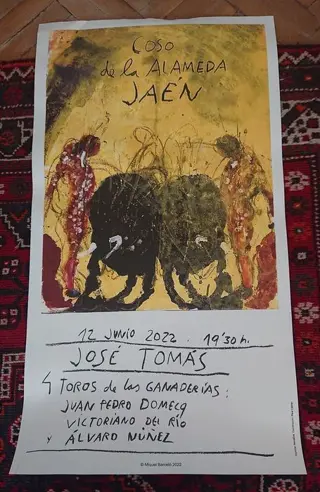 COSO
de la ALAMEDA
JAÉN
12 JUNIO 2022 . 19'30 h.
JOSÉ TOMÁS
4 TOROS de las GANADERÍAS:
JUAN PEDRO DOMECQ
VICTORIANO DEL RÍO
Y ÁLVARO NÚÑEZ
© Miquel Barceló 2022